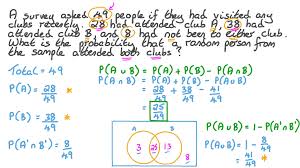 A survey asked 49 people if they had visited any
clubs recently. 28 had attended club A, 38 had
attended club B, and 8 had not been to either club.
What is the probability that a random person from
the sample attended both clubs?
Total = 49
P(A) = 28/49
P(B) = 38/49
P(A'∩B') = 8/49
P(A∪B) = P(A) + P(B) - P(A∩B)
P(A∩B) = P(A) + P(B) - P(A∪B)
= 28/49 + 38/49 - 41/49
= 25/49
A B
3 25 13
8
P(A∪B) = 1 - P(A'∩B')
P(A∪B) = 1 - 8/49
= 41/49